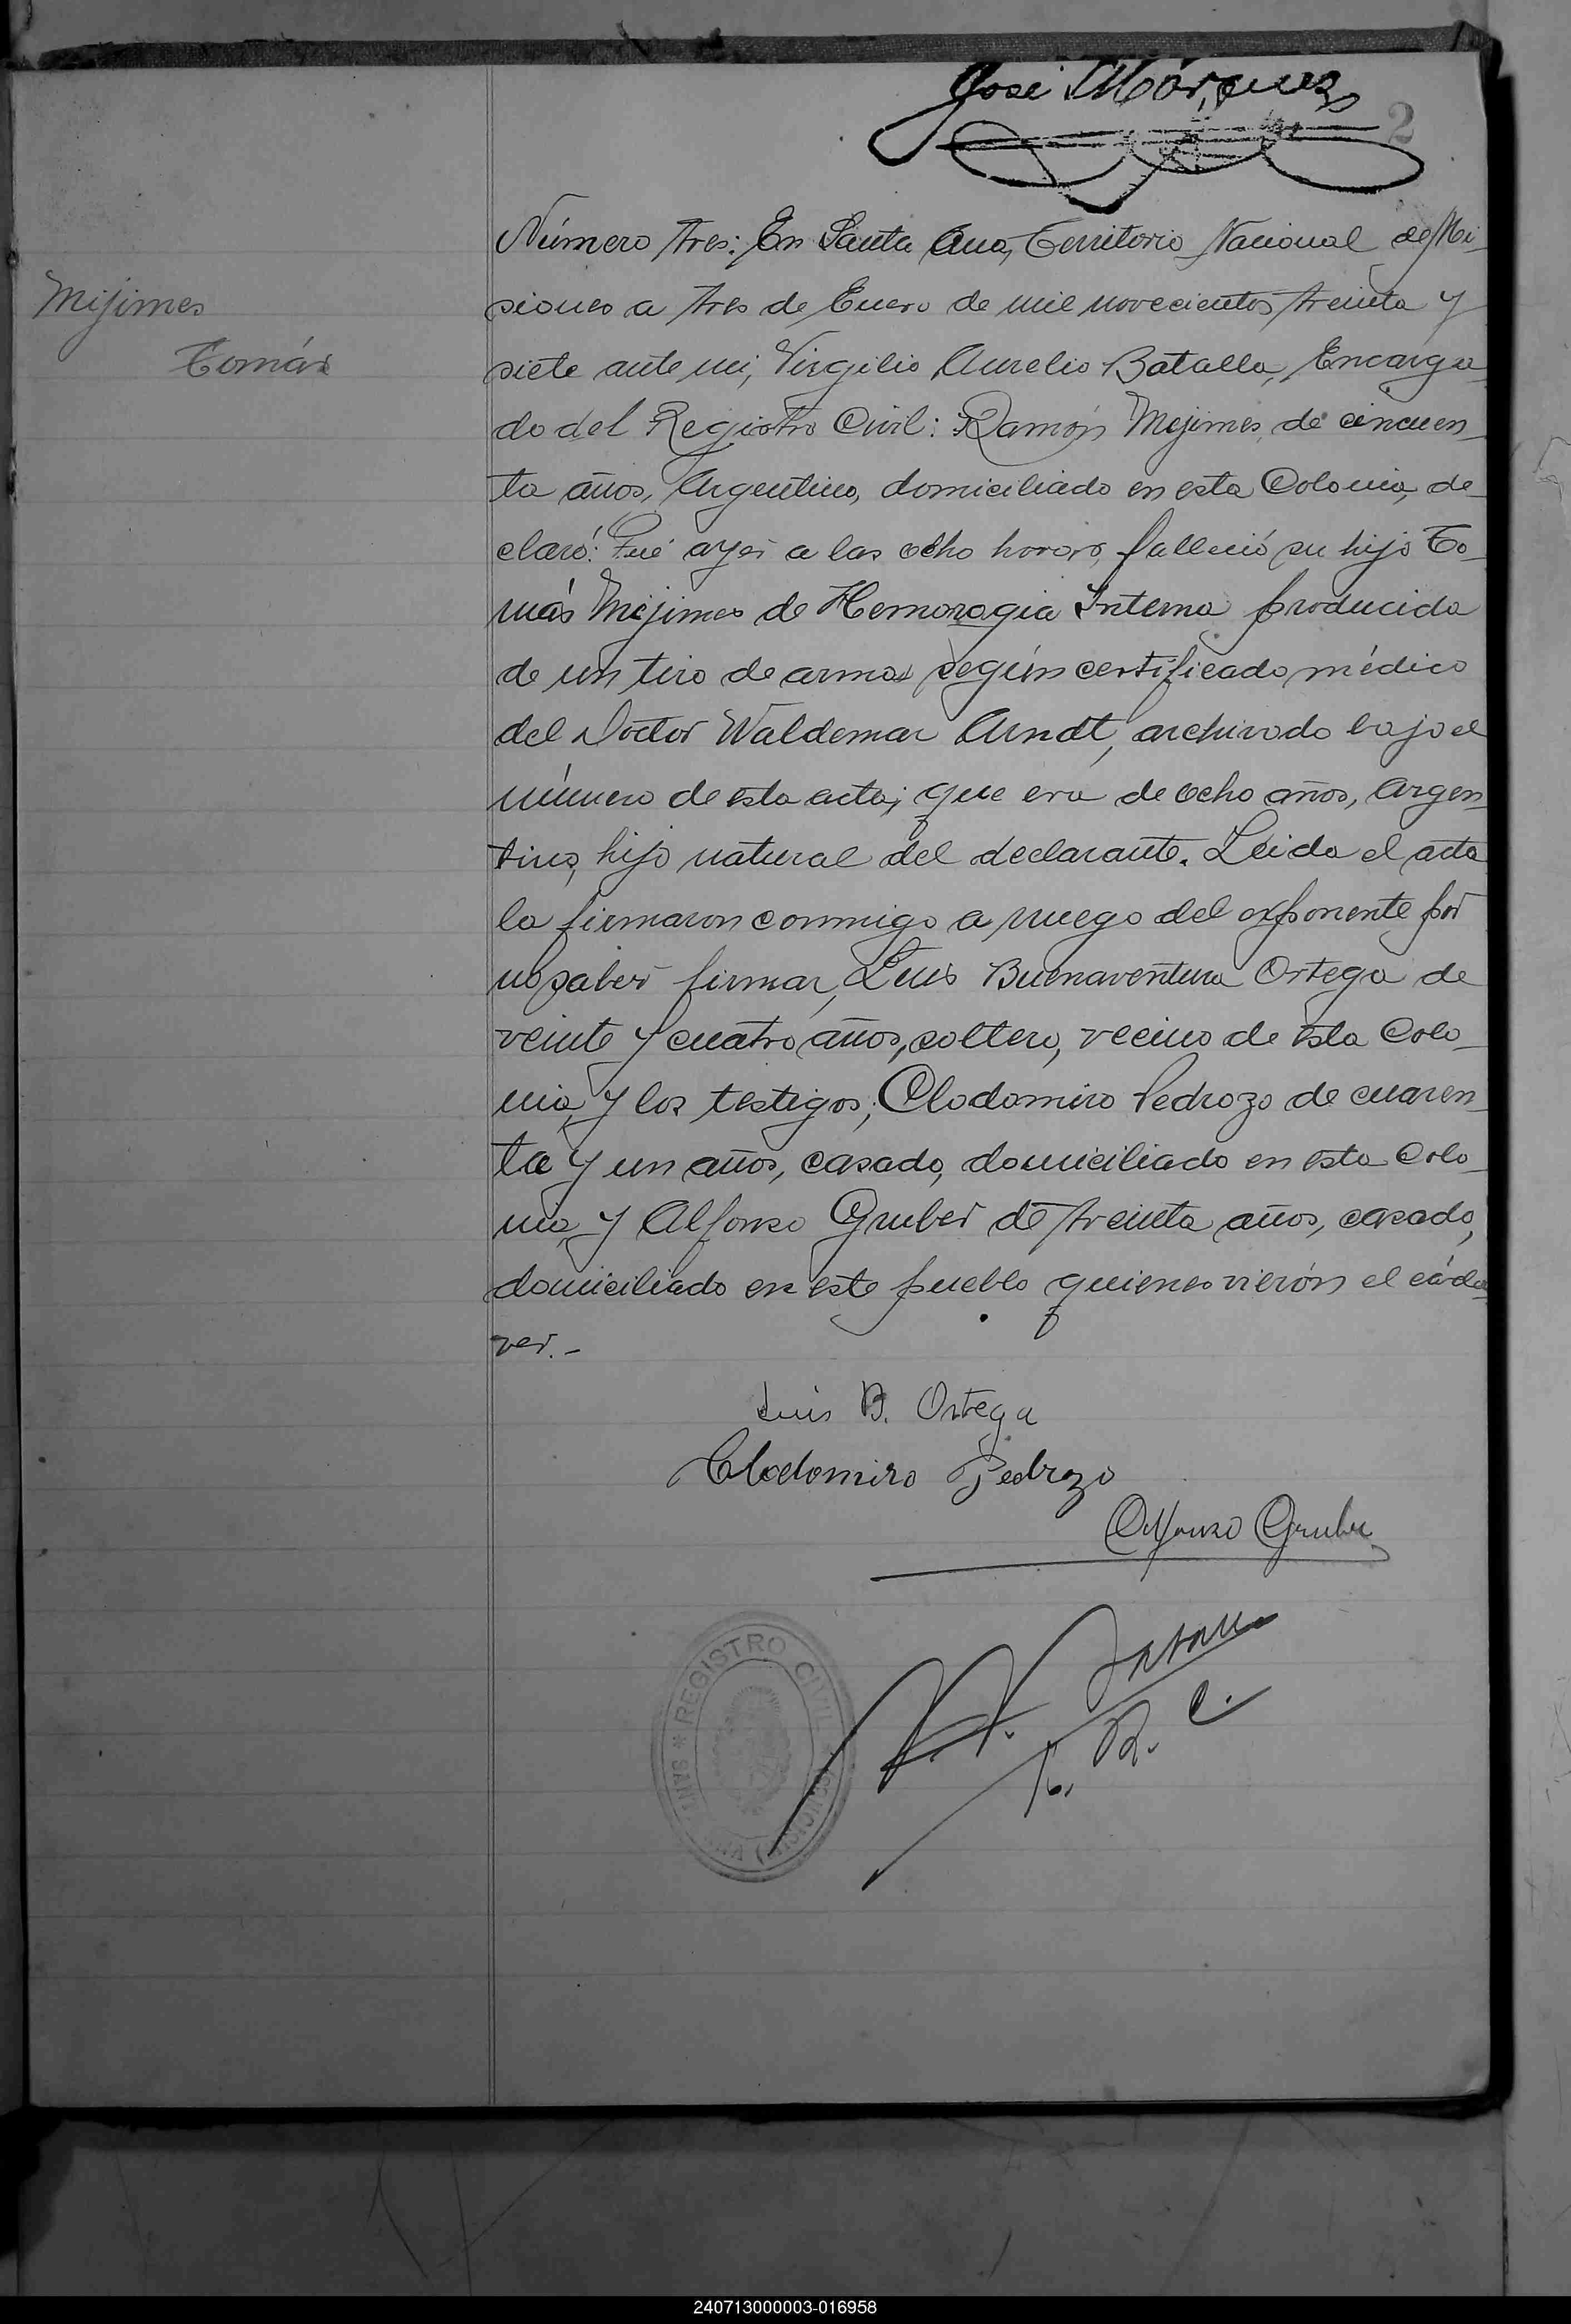 José Márquez
2
Mijimes
Tomás
Número tres: En Santa Ana, Territorio Nacional de Mi-
siones a tres de Enero de mil novecientos treinta y
siete ante mi, Virgilio Aurelio Batalla, Encarga-
do del Registro Civil: Ramón Mejimes, de cincuen-
ta años, Argentino, domiciliado en esta Colonia, de-
claró: Qué ayer a las ocho horas, falleció su hijo To-
más Mejimes de Hemoragia Interna producida
de un tiro de armas según certificado médico
del Doctor Waldemar Arndt, archivado bajo el
número de esta acta; que era de ocho años, argen-
tino, hijo natural del declarante. Leida el acta
la firmaron conmigo a ruego del exponente por
no saber firmar, Luis Buenaventura Ortega de
veinte y cuatro años, soltero, vecino de esta Colo-
nia, y los testigos; Clodomiro Pedrozo de cuaren-
ta y un años, casado, domiciliado en esta Colo-
nia, y Alfonso Gruber de treinta años, casado,
domiciliado en este pueblo quienes vierón el cáda-
ver.-
Luis B. Ortega
Clodomiro Pedrozo
Alfonso Gruber
E. R. C.
* REGISTRO CIVIL
SANTA ANA (MISIONES)
240713000003-016958